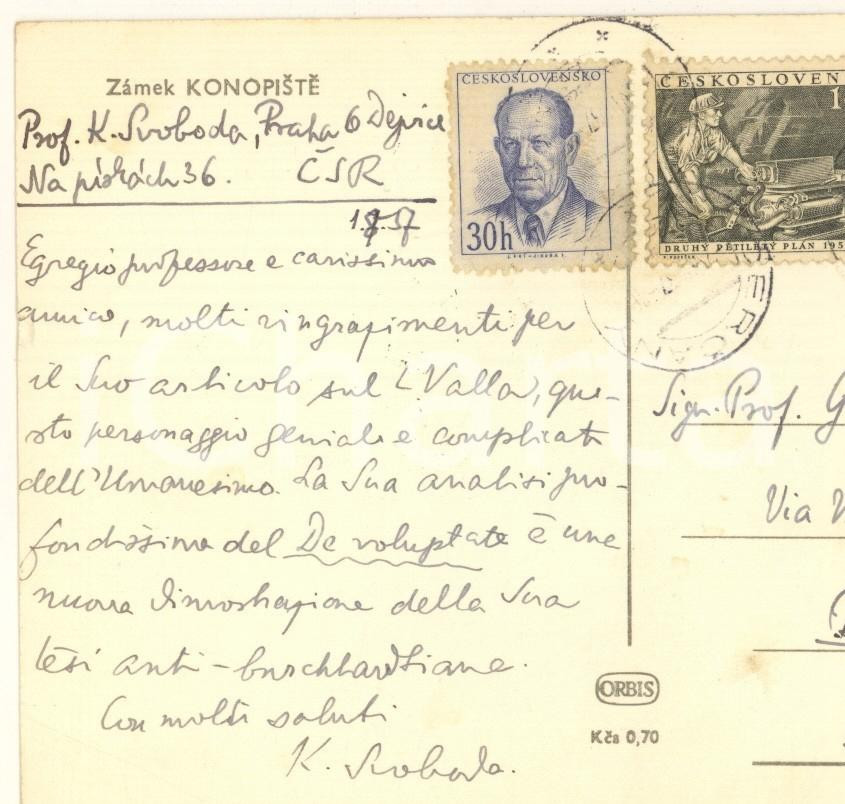 Zámek KONOPIŠTĚ
Prof. K. Svoboda, Praha 6 Dejvice
Na pískách 36. ČSR
57
Egregio professore e carissimo
amico, molti ringrazimenti per
il Suo articolo sul L. Valla, que-
sto personaggio geniale e complicato
dell'Umanesimo. La Sua analisi pro-
fondissima del De voluptate è una
nuova dimostrazione della Sua
tesi anti-burckhardtiane.
Con molti saluti
K. Svoboda.
ČESKOSLOVENSKO
30h
ČESKOSLOVEN
1
DRUHÝ PĚTILETÝ PLÁN 195
Sign. Prof. G
Via
ORBIS
Kčs 0,70